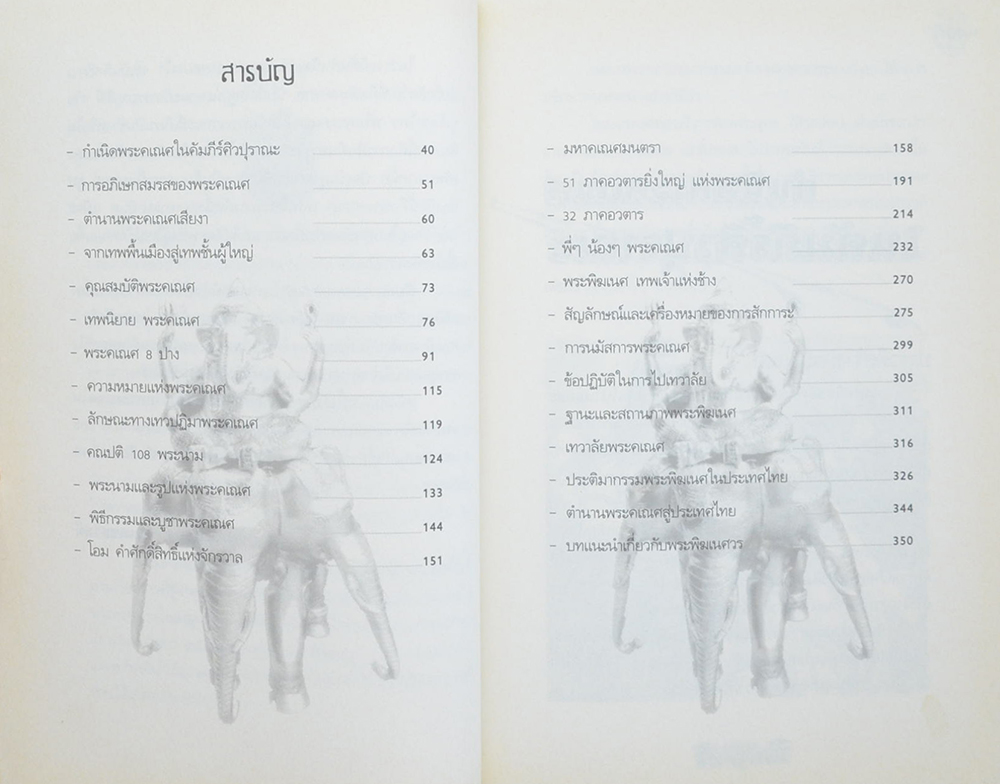 สารบัญ
- กำเนิดพระคเณศในคัมภีร์ศิวปุราณะ 40
- การอภิเษกสมรสของพระคเณศ 51
- ตำนานพระคเณศเสียงา 60
- จากเทพพื้นเมืองสู่เทพชั้นผู้ใหญ่ 63
- คุณสมบัติพระคเณศ 73
- เทพนิยาย พระคเณศ 76
- พระคเณศ 8 ปาง 91
- ความหมายแห่งพระคเณศ 115
- ลักษณะทางเทวปฏิมาพระคเณศ 119
- คณปติ 108 พระนาม 124
- พระนามและรูปแห่งพระคเณศ 133
- พิธีกรรมและบูชาพระคเณศ 144
- โอม คำศักดิ์สิทธิ์แห่งจักรวาล 151
- มหาคเณศมนตรา 158
- 51 ภาคอวตารยิ่งใหญ่ แห่งพระคเณศ 191
- 32 ภาคอวตาร 214
- พี่ๆ น้องๆ พระคเณศ 232
- พระพิฆเนศ เทพเจ้าแห่งช้าง 270
- สัญลักษณ์และเครื่องหมายของการสักการะ 275
- การนมัสการพระคเณศ 299
- ข้อปฏิบัติในการไปเทวาลัย 305
- ฐานะและสถานภาพพระพิฆเนศ 311
- เทวาลัยพระคเณศ 316
- ประติมากรรมพระพิฆเนศในประเทศไทย 326
- ตำนานพระคเณศสู่ประเทศไทย 344
- บทแนะนำเกี่ยวกับพระพิฆเนศวร 350